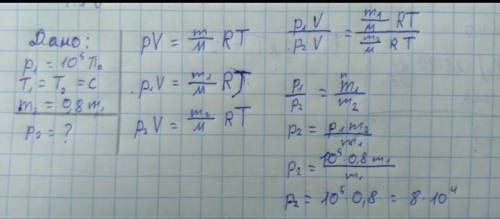 Дано:
p₁ = 10⁵ Па
T₁ = T₂ = C
m₂ = 0,8 m₁
p₂ = ?
pV = m/M RT
p₁V = m₁/M RT
p₂V = m₂/M RT
p₁V/p₂V = (m₁/M RT)/(m₂/M RT)
p₁/p₂ = m₁/m₂
p₂ = p₁m₂/m₁
p₂ = 10⁵·0,8 m₁/m₁
p₂ = 10⁵·0,8 = 8·10⁴